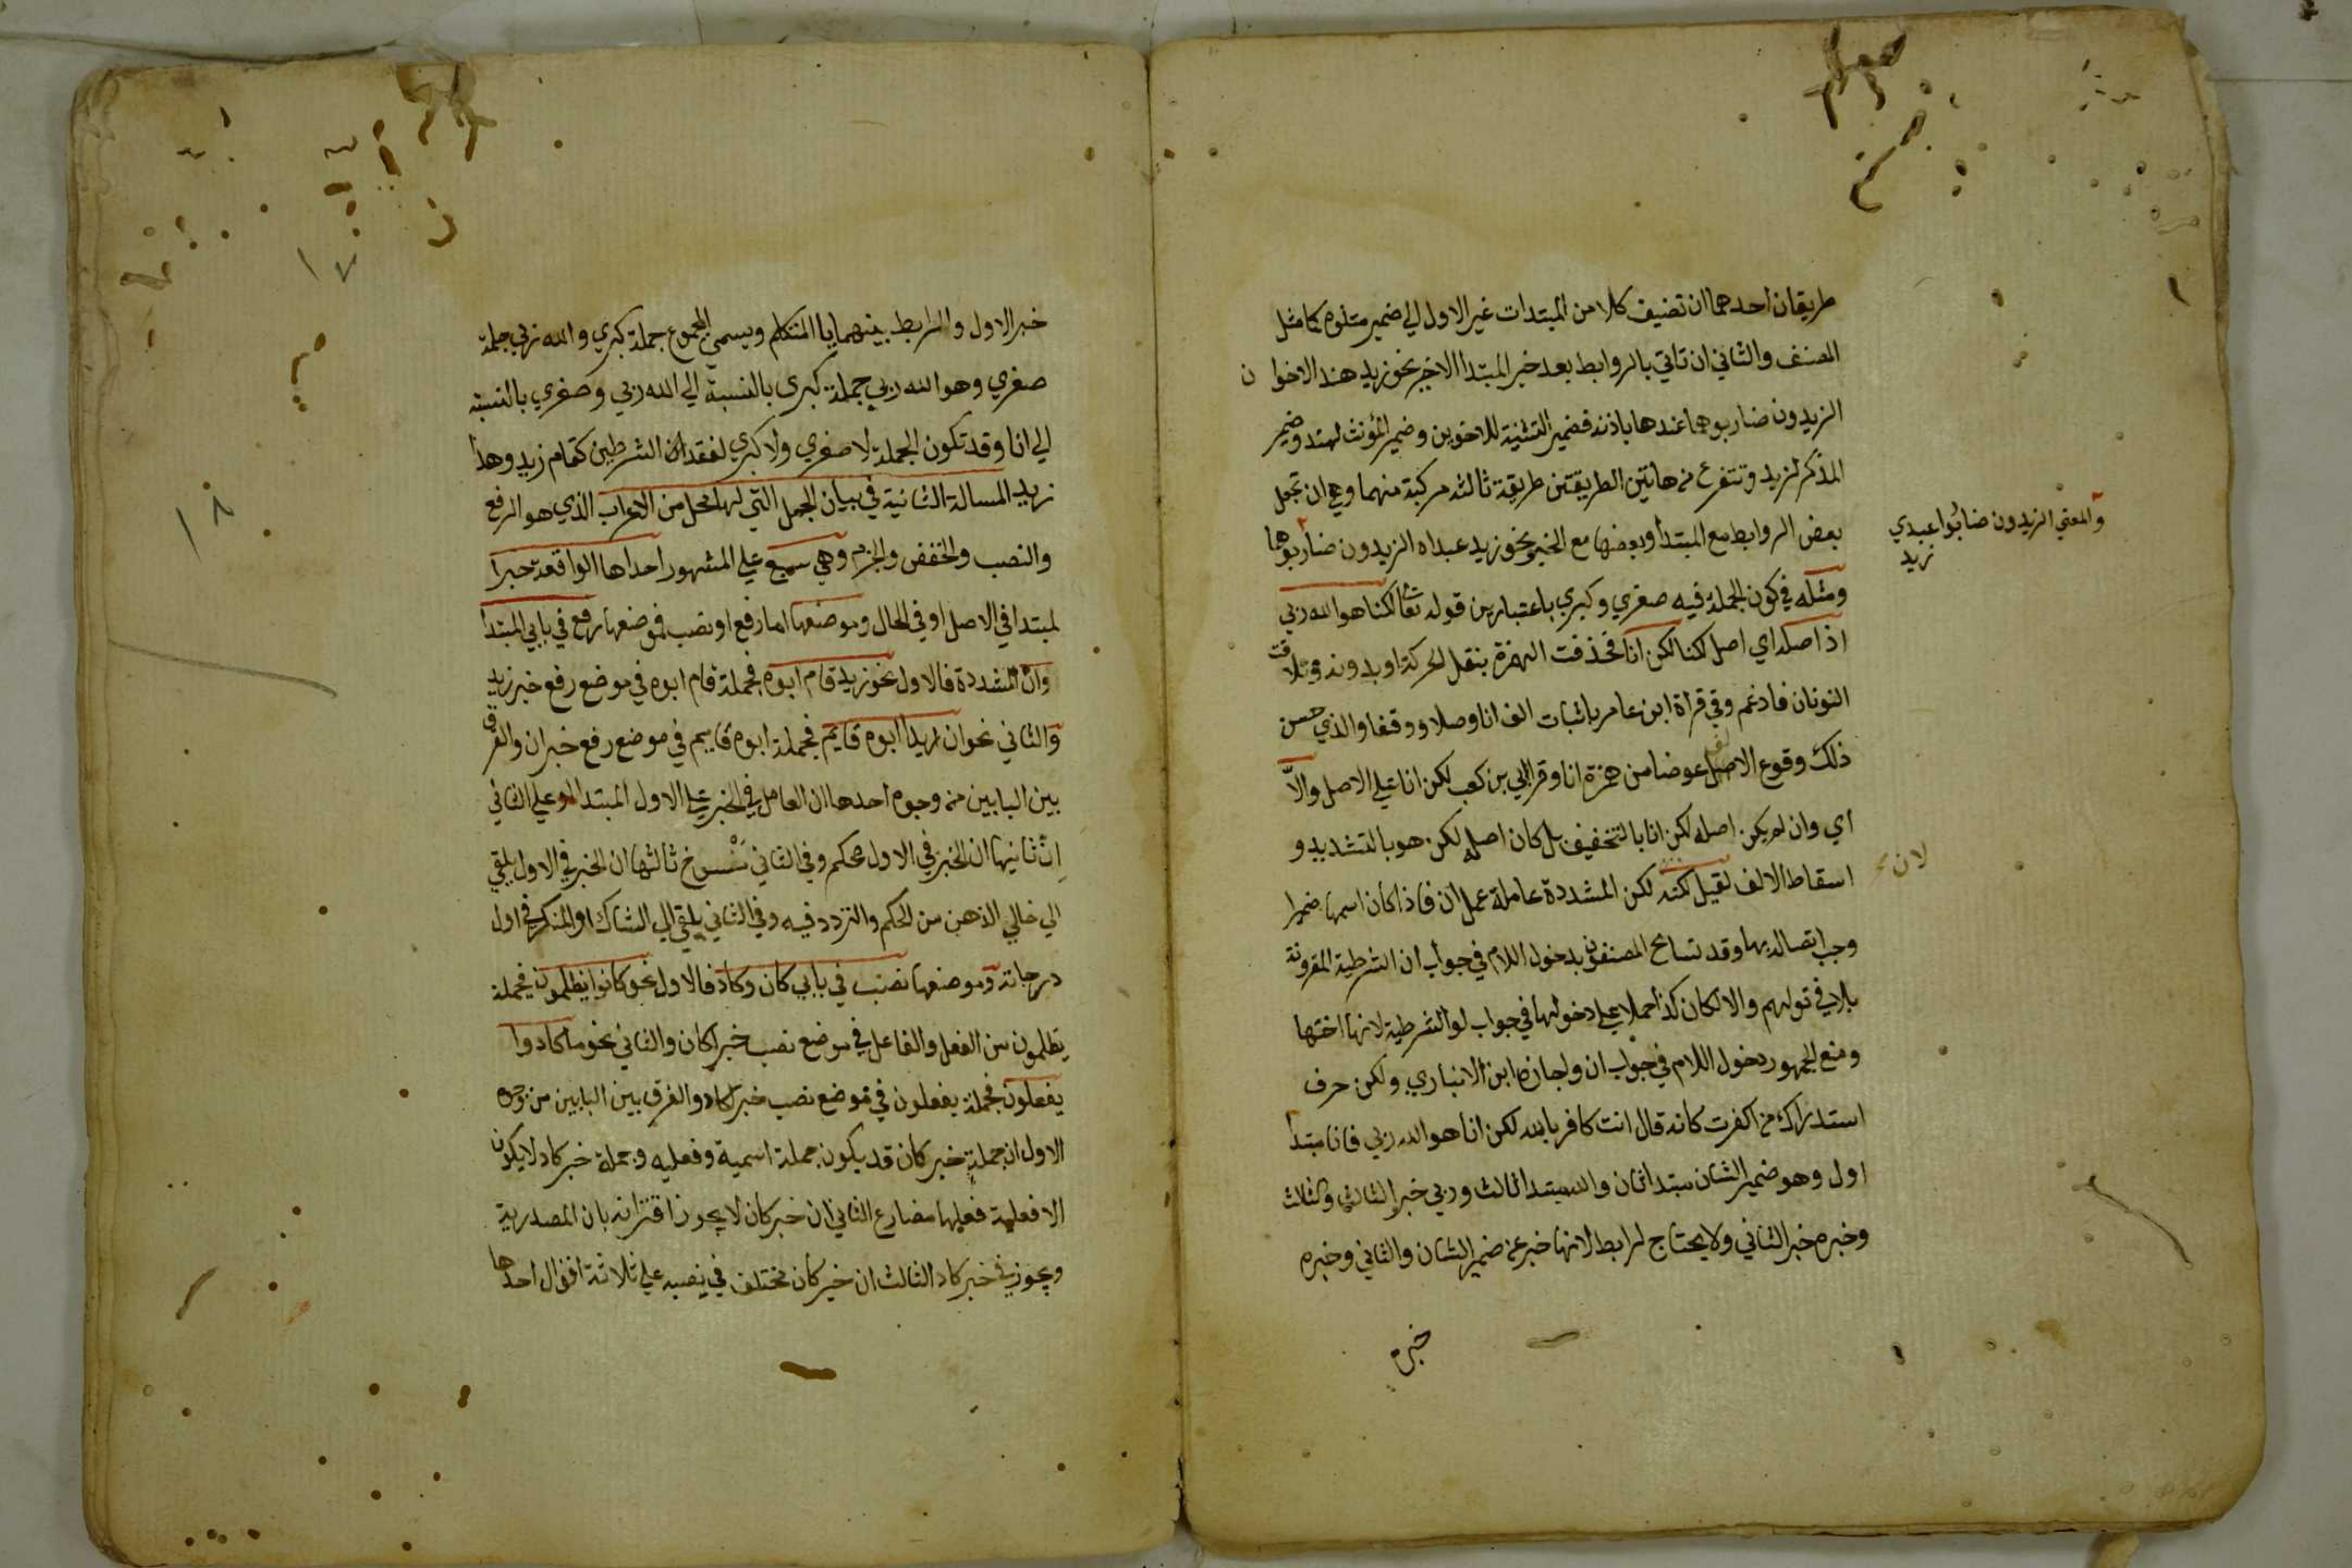 طريقان احدهما ان تضيف كلا من المبتدات غير الاول الي ضمير متلوه كما مثل
المصنف والثاني ان تاتي بالروابط بعد خبر المبتدا الاخير نحو زيد هند الاخوان
الزيدون ضاربوهما عندها باذنه فضمير التثنية للاخوين وضمير المؤنث لهند وضمير
المذكر لزيد وتتفرع من هاتين الطريقتين طريقة ثالثة مركبة منهما وهي ان تجعل
بعض الروابط مع المبتدا وبعضها مع الخبر نحو زيد عبداه الزيدون ضاربوهما
والمعني الزيدون ضاربوا عبدي
زيد
ومثله في كون الجملة فيه صغري وكبري باعتبارين قوله تعا لكنا هو الله ربي
اذ اصله اي اصل لكنا لكن انا فحذفت الهمزة بنقل الحركة او بدونه وتلاقت
النونان فادغم وفي قراة ابن عامر باثبات الف انا وصلا ووقفا والذي حسن
ذلك وقوع الالف عوضا من همزة انا وقرا ابي بن كعب لكن انا علي الاصل والا
اي وان لم يكن اصله لكن انا بالتخفيف بل كان اصله لكن هو بالتشديد و
اسقاط الالف لقيل لكنه لكن المشددة عاملة عمل ان فاذا كان اسمها ضميرا
لان
وجب اتصاله بها وقد تسامح المصنفون بدخول اللام في جواب ان الشرطية المقرونة
بلا في قولهم والا لكان كذا حملا علي دخولها في جواب لو الشرطية لانها اختها
ومنع الجمهور دخول اللام في جواب ان واجازه ابن الانباري ولكن حرف
استدراك من اكفرت كانه قال انت كافر بالله لكن انا هو الله ربي فانا مبتدا
اول وهو ضمير الشان مبتدا ثان والله مبتدا ثالث وربي خبر الثالث والثالث
وخبره خبر الثاني ولا يحتاج لرابط لانها خبر عن ضمير الشان والثاني وخبره
خبر
خبر الاول والرابط بينهما يا المتكلم ويسمي المجموع جملة كبري والله ربي جملة
صغري وهو الله ربي جملة كبري بالنسبة الي الله ربي وصغري بالنسبة
الي انا وقد تكون الجملة لا صغري ولا كبري لفقدان الشرطين كقام زيد وهذا
زيد المسالة الثانية في بيان الجمل التي لها محل من الاعراب الذي هو الرفع
والنصب والخفض والجزم وهي سبع علي المشهور احداها الواقعة خبرا
لمبتدا في الاصل او في الحال وموضعها اما رفع او نصب فموضعها رفع في بابي المبتدا
وان المشددة فالاول نحو زيد قام ابوه فجملة قام ابوه في موضع رفع خبر زيد
والثاني نحو ان زيدا ابوه قايم فجملة ابوه قايم في موضع رفع خبر ان والفرق
بين البابين من وجوه احدها ان العامل في الخبر علي الاول المبتدا وعلي الثاني
ان ثانيها ان الخبر في الاول محكم وفي الثاني منسوخ ثالثها ان الخبر في الاول يلقي
الي خالي الذهن من الحكم والتردد فيه وفي الثاني يلقي الي الشاك او المنكر في اول
درجاته وموضعها نصب في بابي كان وكاد فالاول نحو كانوا يظلمون فجملة
يظلمون من الفعل والفاعل في موضع نصب خبر لكان والثاني نحو ما كادوا
يفعلون فجملة يفعلون في موضع نصب خبر لكاد والفرق بين البابين من وجوه
الاول ان جملة خبر كان قد يكون جملة اسمية وفعليه وجملة خبر كاد لا يكون
الا فعلية فعلها مضارع الثاني ان خبر كان لا يجوز اقترانه بان المصدرية
ويجوز في خبر كاد الثالث ان خبر كان مختلف في نصبه علي ثلاثة اقوال احدها
١٧
١٨